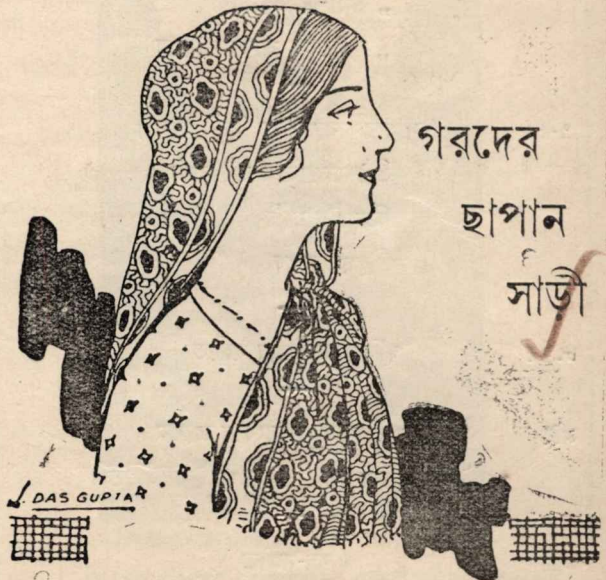 গরদের
ছাপান
সাড়ী
J. DAS GUPTA